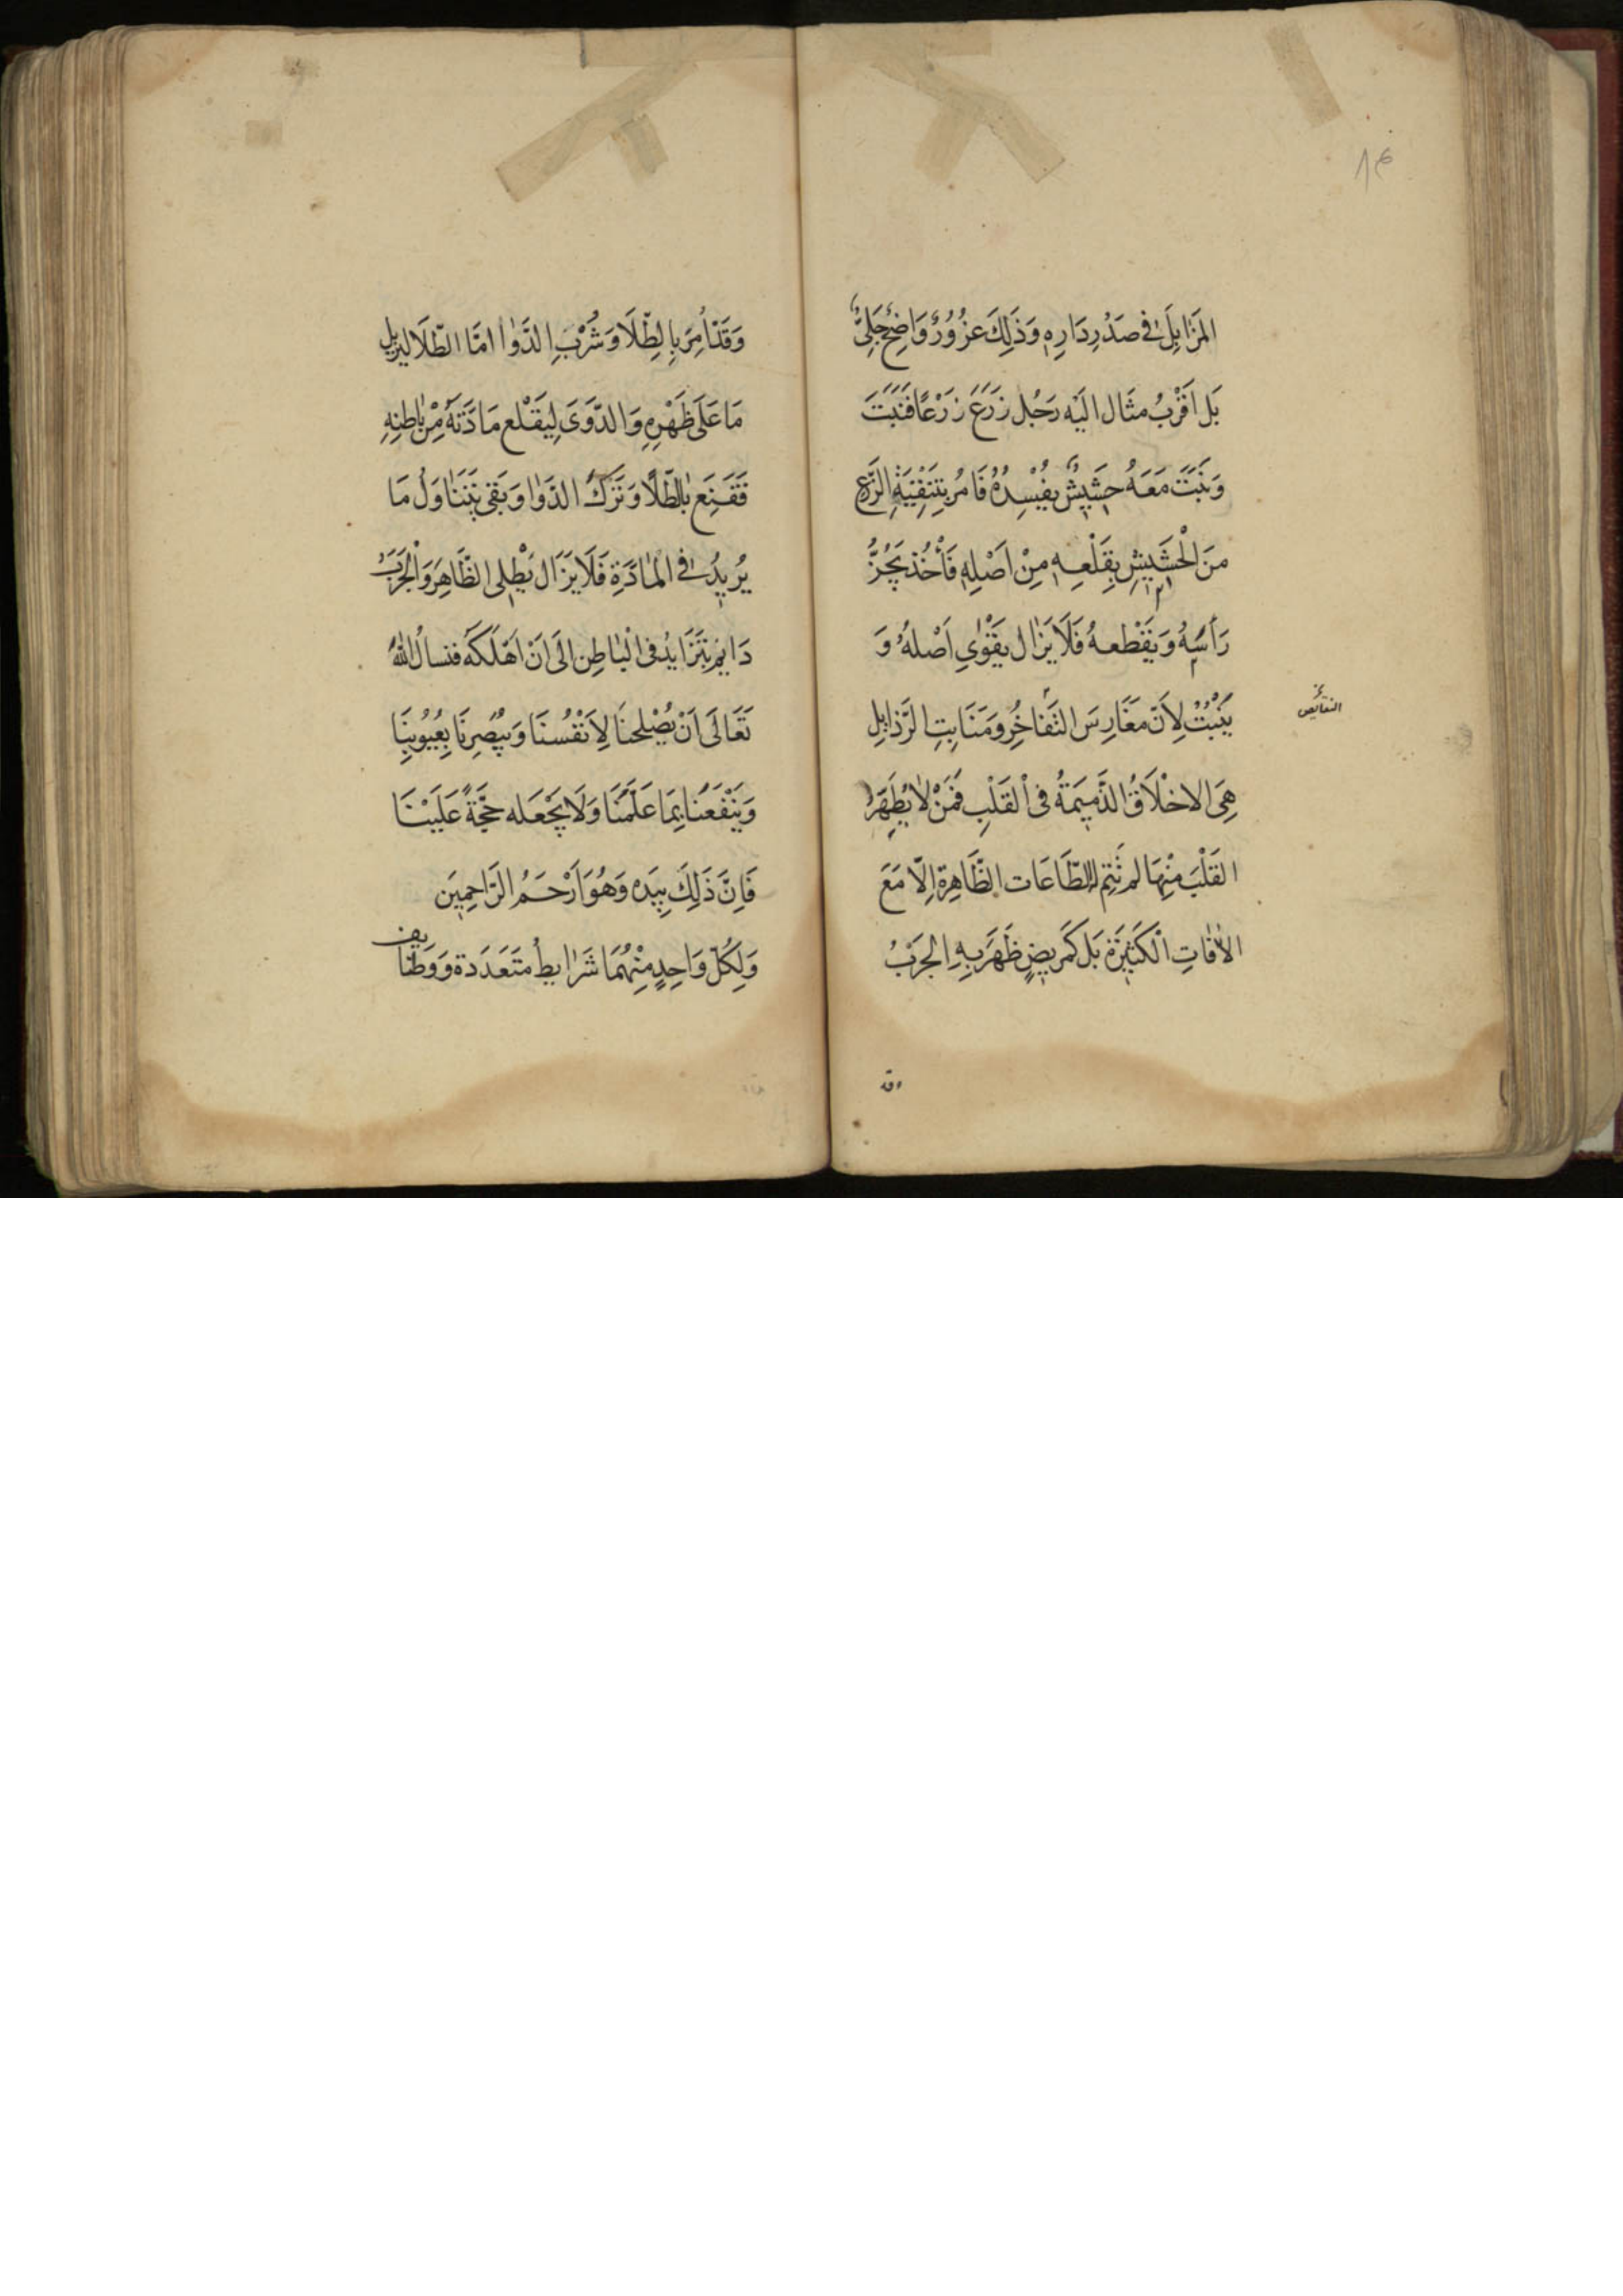 ١٤
المَزَابِلَ فِي صَدْرِ دَارِهِ وَذَلِكَ غُرُورٌ وَاضِحٌ جَلِيٌّ
بَل اَقْرَبُ مثَال اليَه رَجُل زَرَعَ زَرْعًا فَنَبَتَ
وَنَبَتَ مَعَهُ حَشِيشٌ يُفْسِدُهُ فَامُرَ بِتَنْقِيَةِ الزَّرْعِ
منَ الْحَشِيشِ بِقَلْعِهِ مِنْ اَصْلِهِ فَأْخُذ يَجُزُّ
رَأسَهُ وَيَقْطعهُ فَلَا يَزَال يَقْوٰى اَصْلهُ وَ
يَنْبُتُ لِاَنّ مَغَارِسَ التفَاخُرِ وَمَنَابِتِ الرَّذايِلِ
النقايص
هِىَ الاخْلَاقُ الذَّمِيمَةُ فى الْقَلْبِ فَمَنْ لَا يُطَهِّرُ
القَلْبَ مِنْهَا لم تَتِم لهُ الطّاعَات الظَّاهِرة اِلّا مَعَ
الاٰفاتِ الْكَثِيرَة بَل كَمَرِيضٍ ظَهَرَ بِهِ الجَرَبُ
وقد
وَقَدْ اُمِرَ بِالطِّلَا وَشُرْبِ الدَّوا امَّا الطّلَا ليزيل
مَا عَلَى ظَهْرِهِ وَالدَّوَى لِيَقْلع مَادَّتَهُ مِنْ بَاطِنِهِ
فَقَنِعَ بِالطّلَا وَتَرَكَ الدَوا وَبَقى يَتَنَاوَلُ مَا
يُرِيدُ فِي المَادَّةِ فَلَا يَزَال يَطْلِى الظَّاهِرَ وَالْجَرَبُ
دَايم يتَزَايدُ فى الْبَاطِنِ الَى اَنْ اَهْلَكَه فنسالُ اللهَ
تَعَالَى اَنْ يُصْلحنَا لِاَنْفُسنَا وَيُبَصِّرنَا بِعُيُوبِنَا
وَيَنْفَعنَا بِمَا عَلَّمَنَا وَلَا يَجْعَله حُجَّةً عَلَيْنَا
فَاِنَّ ذَلِكَ بِيَدِه وَهُوَ اَرْحَمُ الرَّاحِمِيَن
وَلِكُلّ وَاحِدٍ مِنْهُمَا شَرَايطُ متَعَدّدَة وَوَظَايف